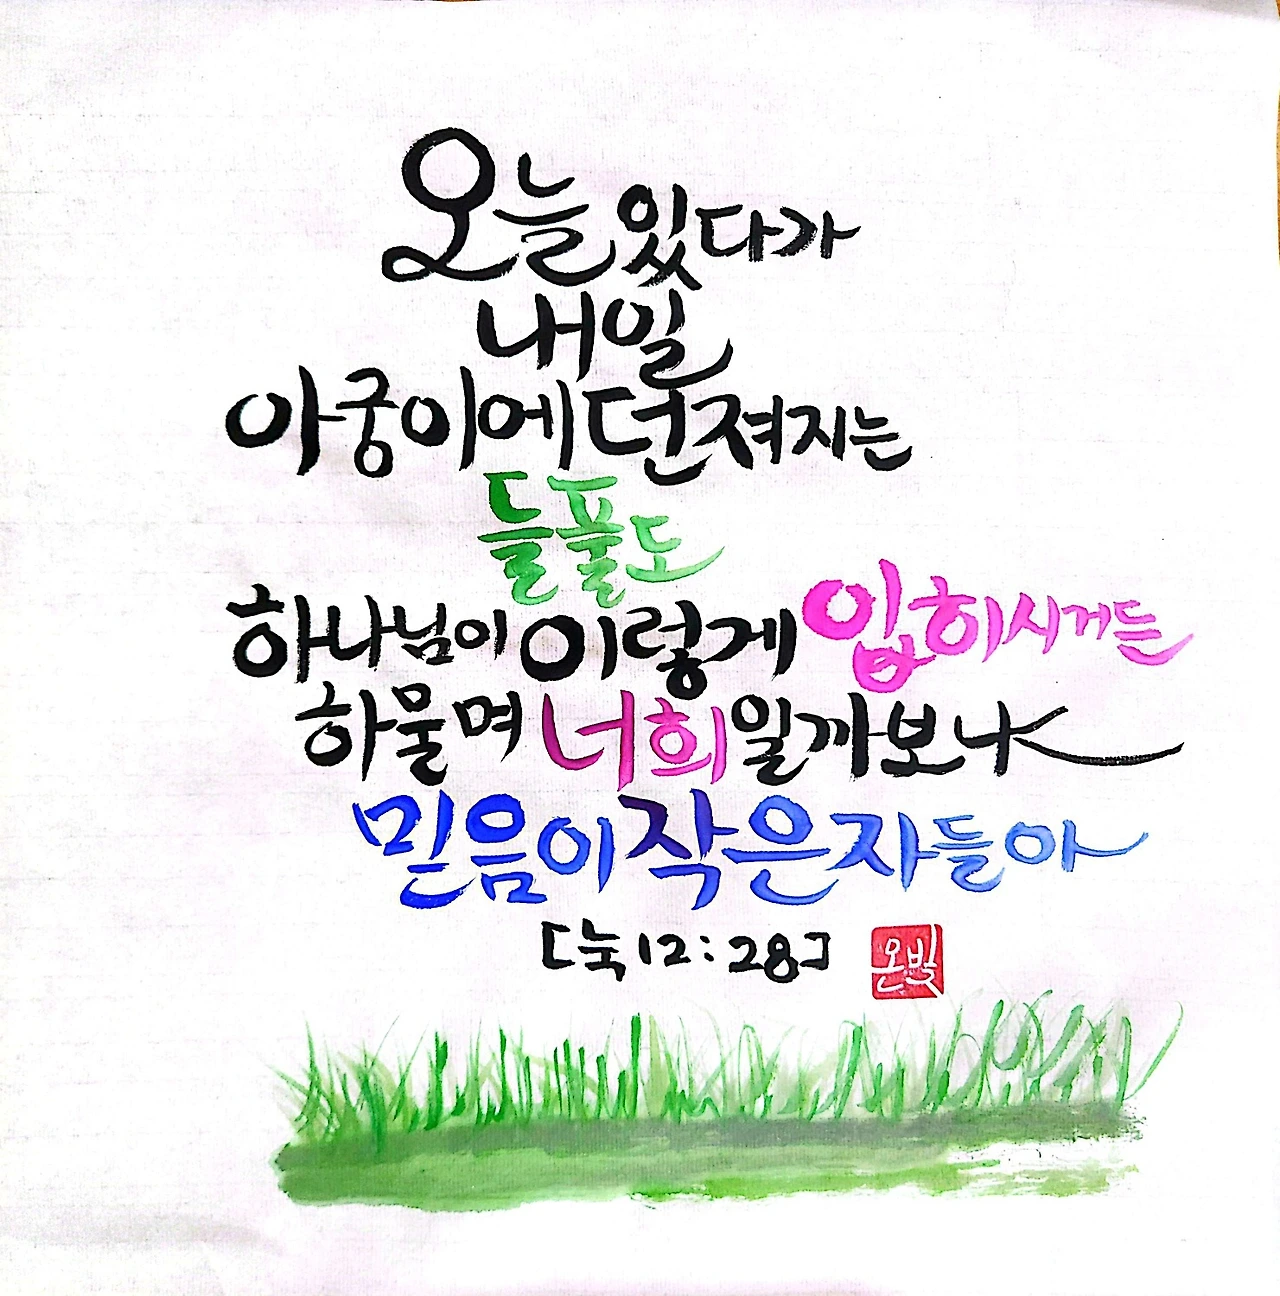 오늘 있다가
내일
아궁이에 던져지는
들풀도
하나님이 이렇게 입히시거든
하물며 너희일까보냐
믿음이 작은 자들아
[눅 12:28]
온빛